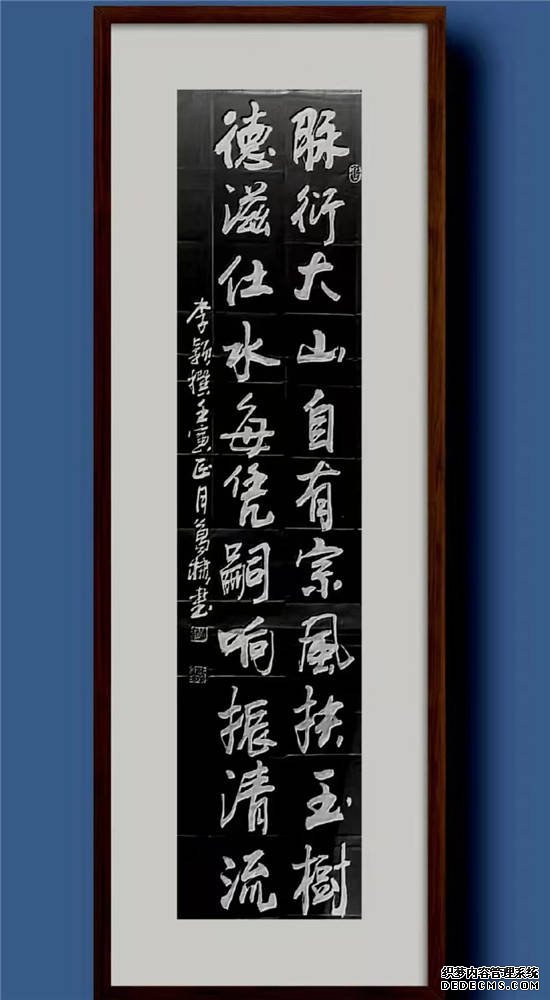 脉衍大山自有宗风扶玉樹
德滋仕水每凭嗣响振清流
李颖撰壬寅正月葛棣书
织梦内容管理系统
DEDECMS.COM